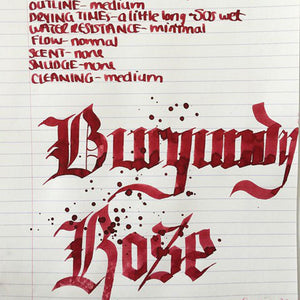 OUTLINE- medium
DRYING TIMES- a little long -50s wet
WATER RESISTANCE- minimal
FLOW- normal
SCENT- none
SMUDGE- none
CLEANING- medium
Burgundy
Rose